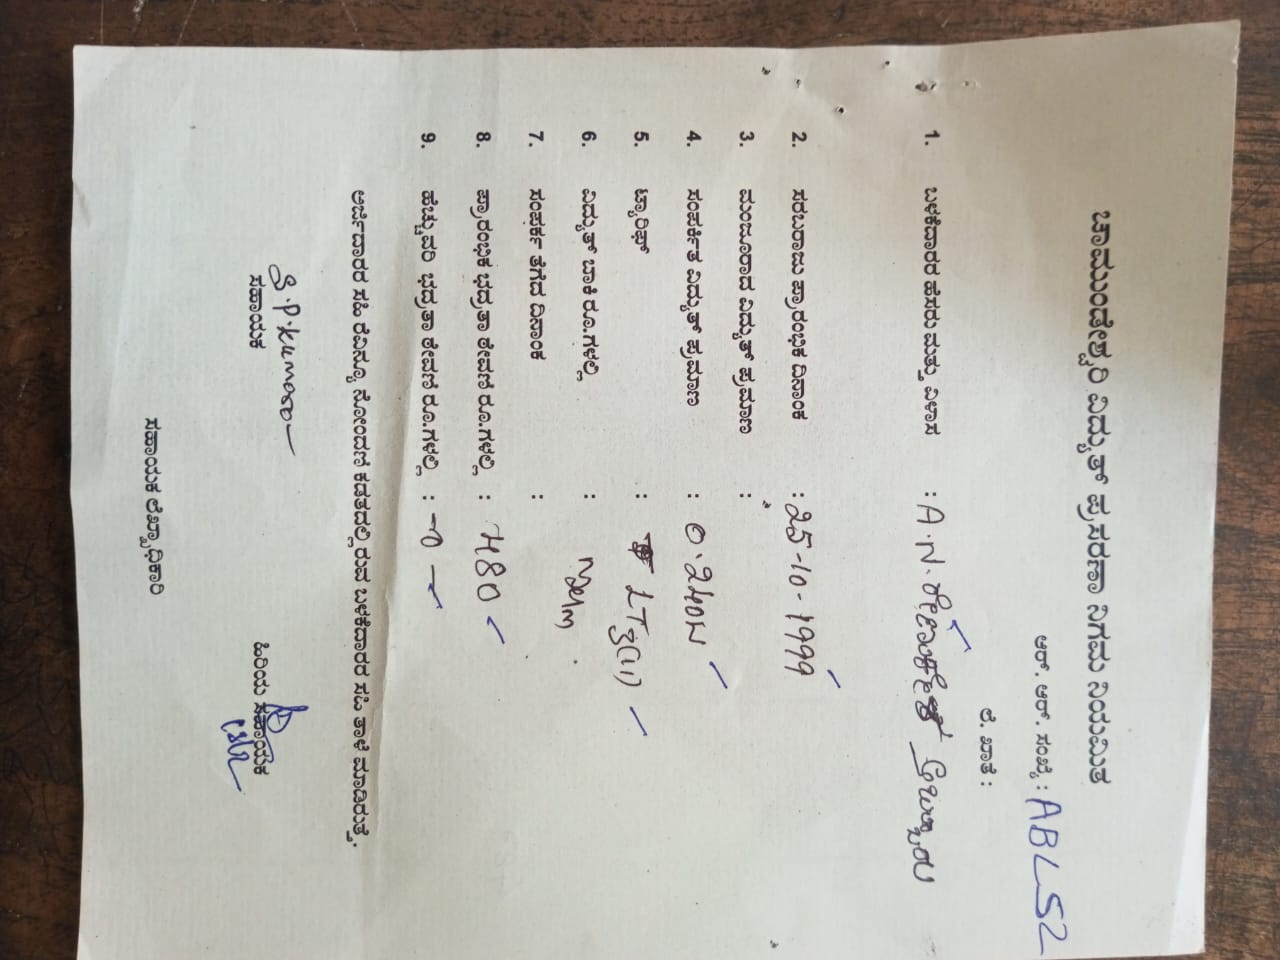 ಚಾಮುಂಡೇಶ್ವರಿ ವಿದ್ಯುತ್ ಪ್ರಸರಣಾ ನಿಗಮ ನಿಯಮಿತ
ಆರ್. ಆರ್. ಸಂಖ್ಯೆ : ABL52
ಲೆ. ಖಾತೆ :
1. ಬಳಕೆದಾರರ ಹೆಸರು ಮತ್ತು ವಿಳಾಸ : A.N.
2. ಸರಬರಾಜು ಪ್ರಾರಂಭಿಕ ದಿನಾಂಕ : 25-10-1999
3. ಮಂಜೂರಾದ ವಿದ್ಯುತ್ ಪ್ರಮಾಣ :
4. ಸಂಪರ್ಕಿತ ವಿದ್ಯುತ್ ಪ್ರಮಾಣ : 0.240
5. ಟ್ಯಾರಿಫ್ : LT
6. ವಿದ್ಯುತ್ ಬಾಕಿ ರೂ.ಗಳಲ್ಲಿ :
7. ಸಂಪರ್ಕ ತೆಗೆದ ದಿನಾಂಕ :
8. ಪ್ರಾರಂಭಿಕ ಭದ್ರತಾ ಠೇವಣಿ ರೂ.ಗಳಲ್ಲಿ : 480
9. ಹೆಚ್ಚುವರಿ ಭದ್ರತಾ ಠೇವಣಿ ರೂ.ಗಳಲ್ಲಿ : -0-
ಅರ್ಜಿದಾರರ ಸಹಿ ರೆವಿನ್ಯೂ ನೋಂದಣಿ ಕಡತದಲ್ಲಿರುವ ಬಳಕೆದಾರರ ಸಹಿ ತಾಳೆ ಮಾಡಿರುತ್ತೆ.
S.P.Kumar
ಸಹಾಯಕ ಹಿರಿಯ ಸಹಾಯಕ
ಸಹಾಯಕ ಲೆಖ್ಖಾಧಿಕಾರಿ